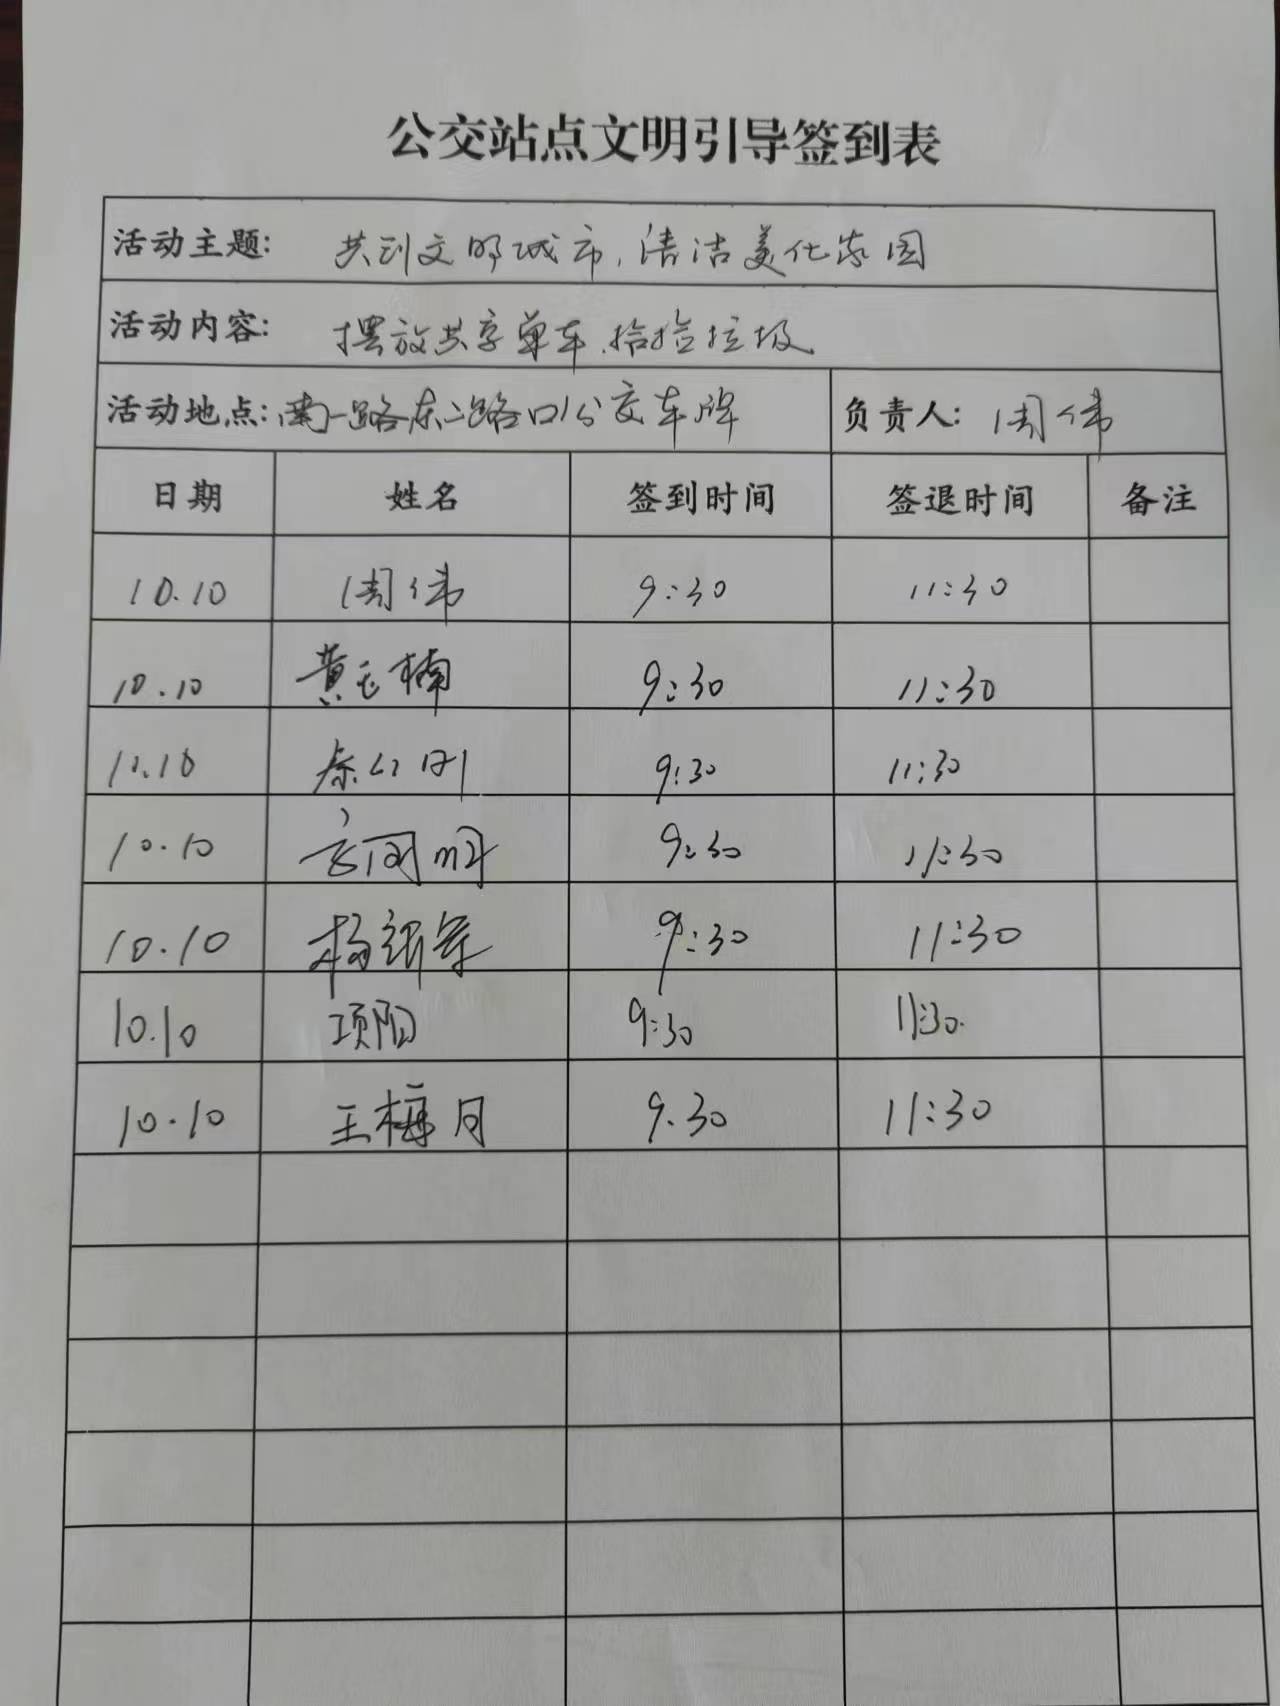 公交站点文明引导签到表
活动主题: 共创文明城市,清洁美化家园
活动内容: 摆放共享单车、拾捡垃圾
活动地点: 南一路东二路口公交车牌 负责人: 周伟
日期 姓名 签到时间 签退时间 备注
10.10 周伟 9:30 11:30
10.10 黄玉楠 9:30 11:30
10.10 9:30 11:30
10.10 9:30 11:30
10.10 杨 9:30 11:30
10.10 项阳 9:30 11:30
10.10 王梅月 9.30 11:30